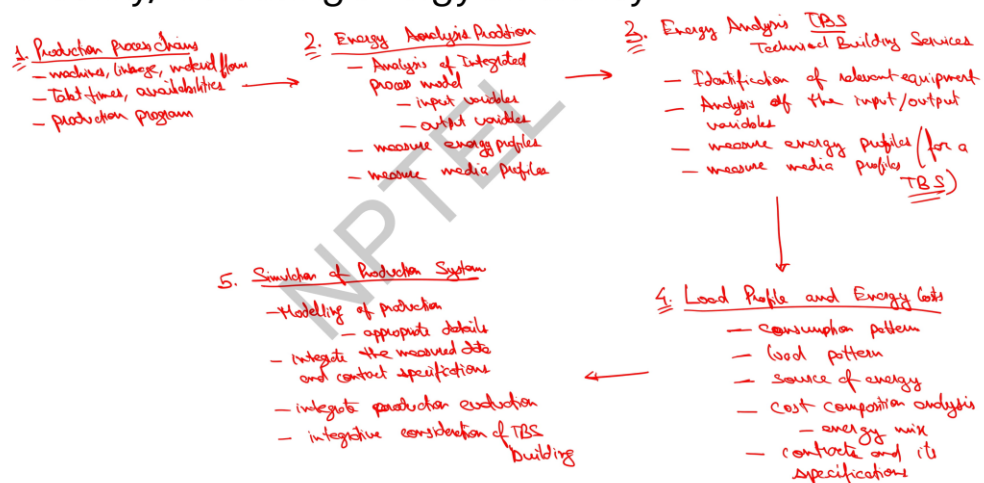 1. Production process chains
— machine, linkage, material flow
— Takt times, availabilities
— production program
2. Energy Analysis Prodtion
— Analysis of Integrated
process model
— input variables
— output variables
— measure energy profiles
— measure media profiles
3. Energy Analysis TBS
Technical Building Services
— Identification of relevant equipment
— Analysis of the input/output
variables
— measure energy profiles (for a
— measure media profiles TBS)
4. Load Profile and Energy Costs
— consumption pattern
— load pattern
— source of energy
— cost composition analysis
— energy mix
— contracts and its
specifications
5. Simulation of Production System
— Modelling of production
— appropriate details
— integrate the measured data
and contact specifications
— integrate production evaluation
— integrative consideration of TBS
building
NPTEL